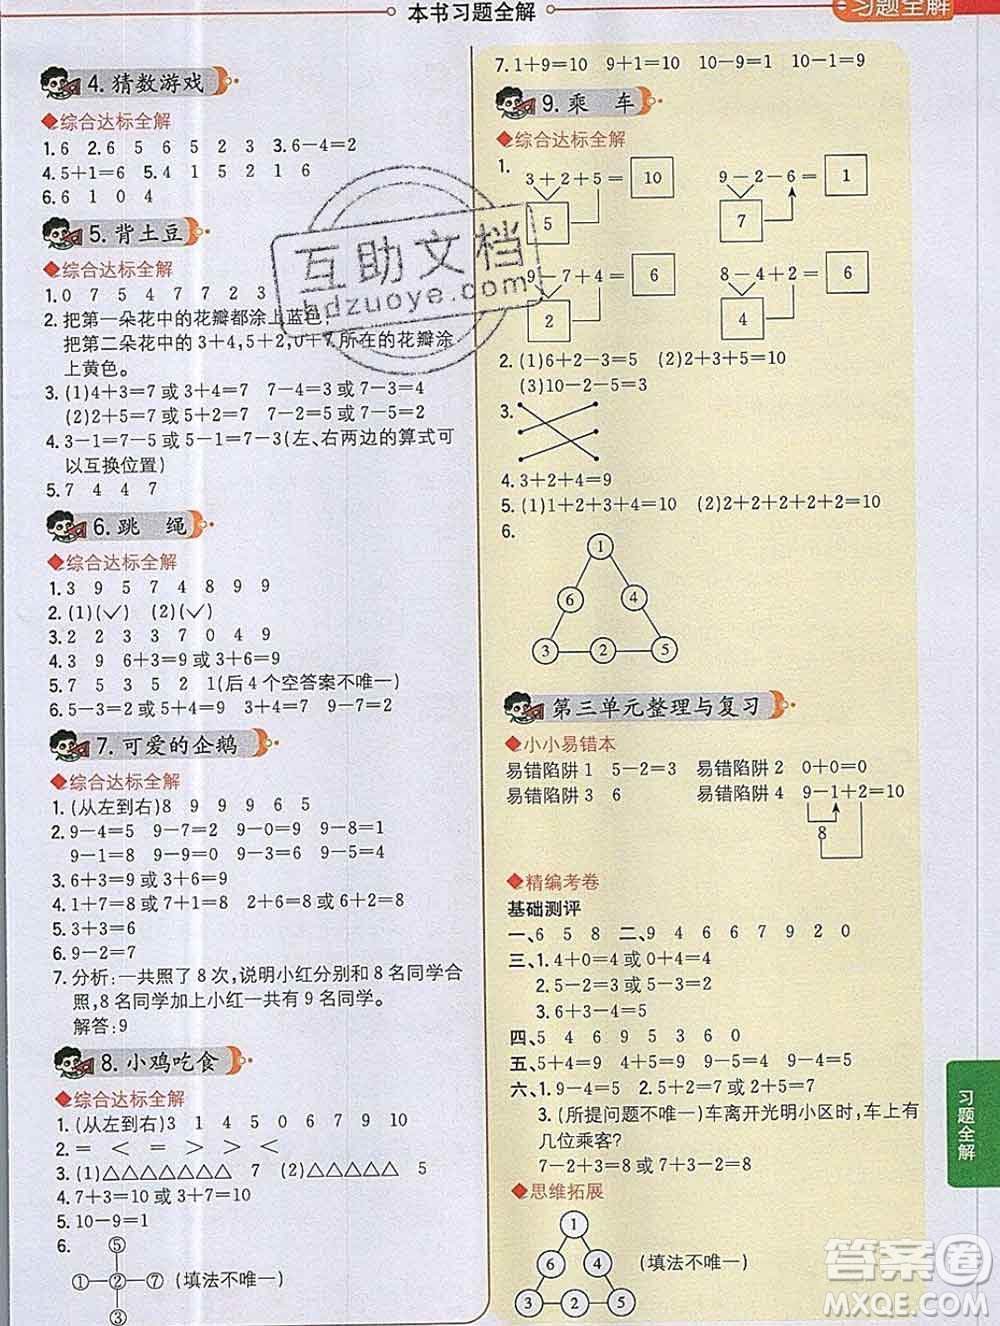 本书习题全解
习题全解
4. 猜数游戏
◆综合达标全解
1. 6 2. 6 5 6 5 2 3 3. 6-4=2
4. 5+1=6 5. 4 1 5 2 1 6
6. 6 1 0 4
5. 背土豆
◆综合达标全解
1. 0 7 5 4 7 7 2 3
2. 把第一朵花中的花瓣都涂上蓝色,
把第二朵花中的 3+4,5+2,0+7 所在的花瓣涂
上黄色。
3. (1)4+3=7 或 3+4=7 7-4=3 或 7-3=4
(2)2+5=7 或 5+2=7 7-5=2 或 7-2=5
4. 3-1=7-5 或 5-1=7-3(左、右两边的算式可
以互换位置)
5. 7 4 4 7
6. 跳 绳
◆综合达标全解
1. 3 9 5 7 4 8 9 9
2. (1)(✓) (2)(✓)
3. 2 2 3 3 7 0 4 9
4. 3 9 6+3=9 或 3+6=9
5. 7 5 3 5 2 1(后 4 个空答案不唯一)
6. 5-3=2 或 5-2=3
7. 可爱的企鹅
◆综合达标全解
1. (从左到右)8 9 9 9 6 5
2. 9-4=5 9-7=2 9-0=9 9-8=1
9-1=8 9-9=0 9-3=6 9-5=4
3. 6+3=9 或 3+6=9
4. 1+7=8 或 7+1=8 2+6=8 或 6+2=8
5. 3+3=6
6. 9-2=7
7. 分析:一共照了 8 次,说明小红分别和 8 名同学合
照,8 名同学加上小红一共有 9 名同学。
解答:9
8. 小鸡吃食
◆综合达标全解
1. (从左到右)3 1 4 5 6 7 9 10
2. = < = > > <
3. (1)△△△△△△△ 7 (2)△△△△△ 5
4. 7+3=10 或 3+7=10
5. 10-9=1
6.
⑤
①—②—⑦ (填法不唯一)
③
7. 1+9=10 9+1=10 10-9=1 10-1=9
9. 乘 车
◆综合达标全解
1.
3+2+5= 10 9-2-6= 1
5 7
9-7+4= 6 8-4+2= 6
2 4
2. (1)6+2-3=5 (2)2+3+5=10
(3)10-2-5=3
3.
4. 3+2+4=9
5. (1)1+2+3+4=10 (2)2+2+2+2+2=10
6.
1
6 4
3 2 5
第三单元整理与复习
◆小小易错本
易错陷阱 1 5-2=3 易错陷阱 2 0+0=0
易错陷阱 3 6 易错陷阱 4 9-1+2=10
8
◆精编考卷
基础测评
一、6 5 8 二、9 4 6 6 7 9 2 0
三、1. 4+0=4 或 0+4=4
2. 5-2=3 或 5-3=2
3. 6+3-4=5
四、5 4 6 9 5 3 6 0
五、5+4=9 4+5=9 9-5=4 9-4=5
六、1. 9-4=5 2. 5+2=7 或 2+5=7
3. (所提问题不唯一)车离开光明小区时,车上有
几位乘客?
7-2+3=8 或 7+3-2=8
◆思维拓展
1
6 4 (填法不唯一)
3 2 5
习题全解
互助文档
hdzuoye.com
答案圈
MXQE.COM